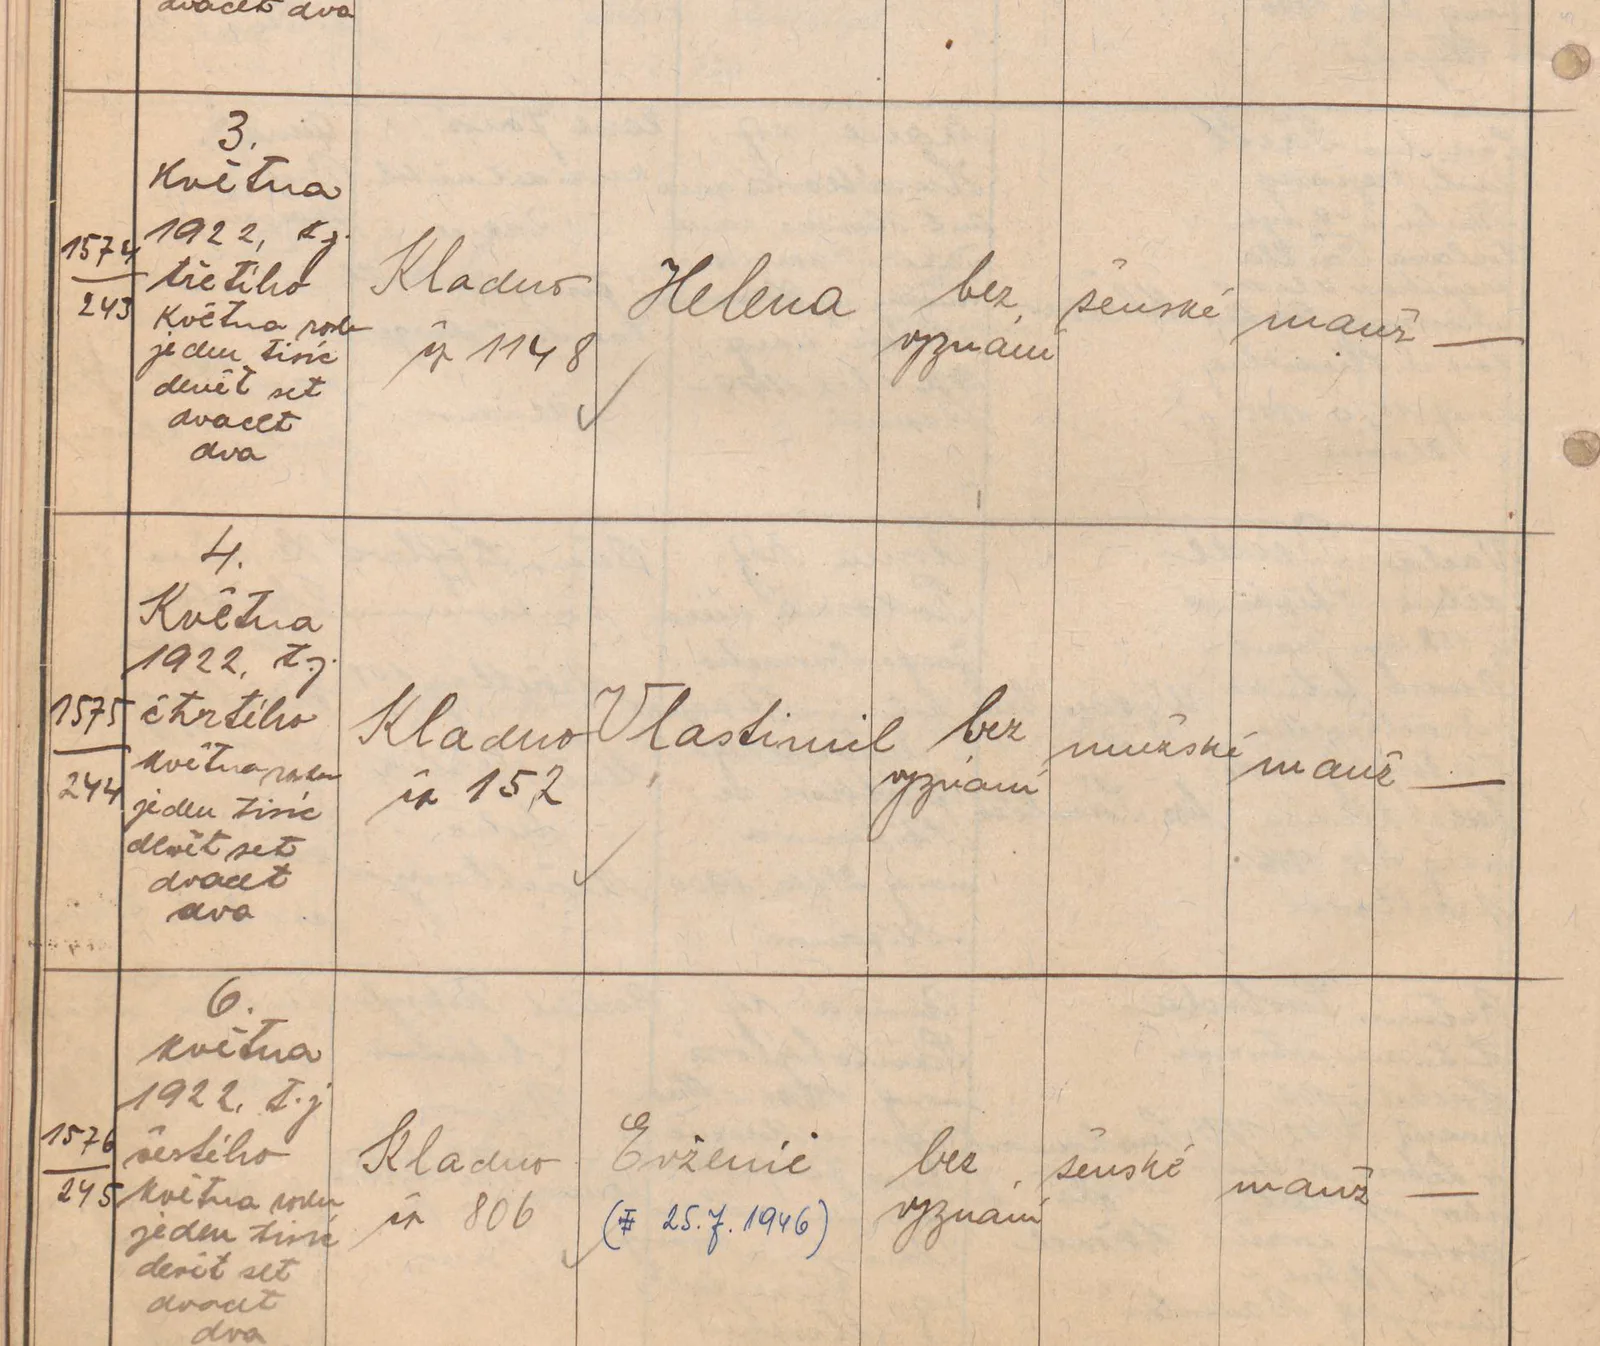 dvacet dva
1574
243
3.
Května
1922, t.j.
třetího
května roku
jeden tisíc
devět set
dvacet
dva
Kladno
čp 1148
Helena
bez
vyznání
ženské
manž
—
1575
244
4.
Května
1922, t.j.
čtvrtého
května roku
jeden tisíc
devět set
dvacet
dva
Kladno
čp 152
Vlastimil
bez
vyznání
mužské
manž
—
1576
245
6.
května
1922, t.j
šestého
května roku
jeden tisíc
devět set
dvacet
dva
Kladno
čp 806
Evženie
(⚭ 25.7.1946)
bez
vyznání
ženské
manž
—